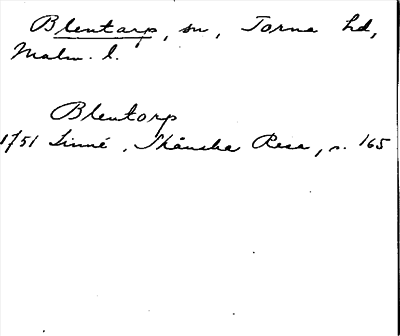 Blentarp, sn, Torna hd,
Malm. l.
Blentorp
1751 Linné, Skånska Resa, s. 165